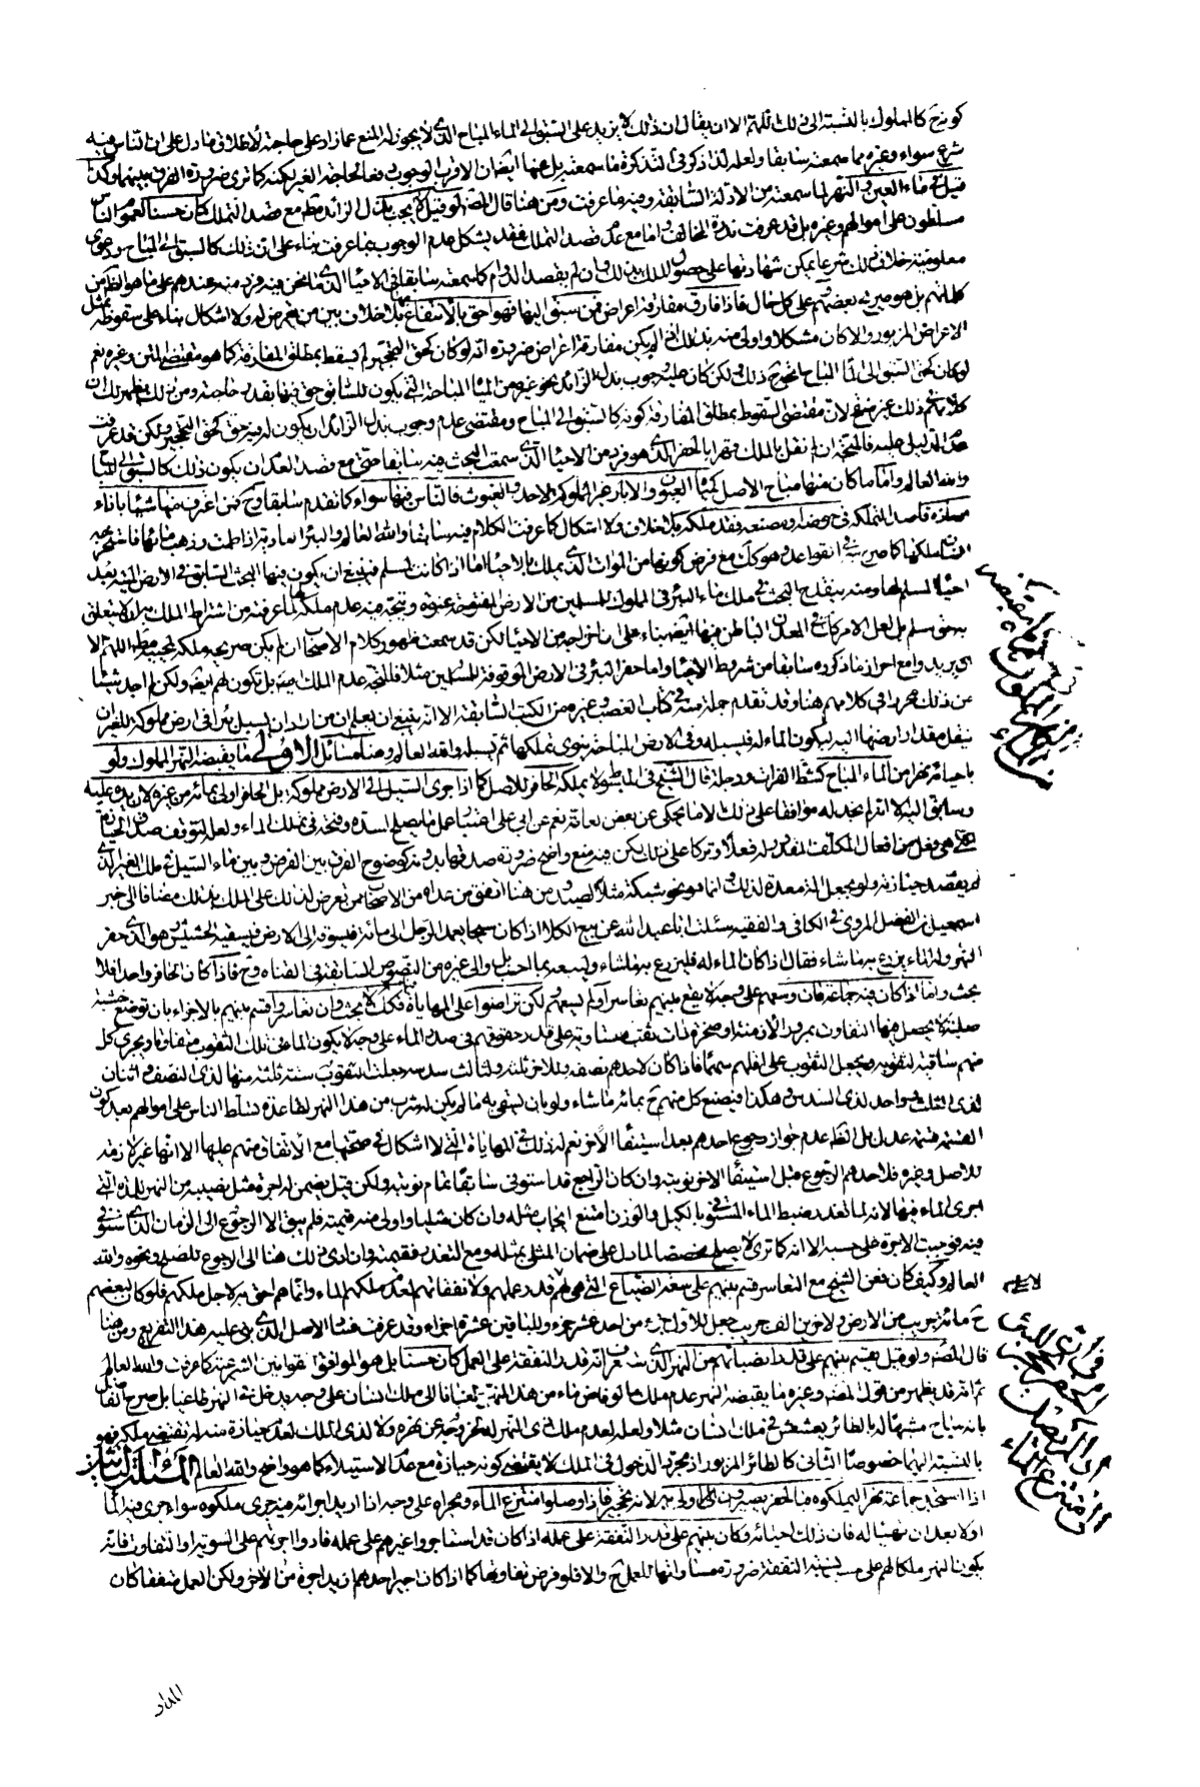 كونه ح كالمملوك بالنسبة الى ذلك اللهم الا ان يقال ان ذلك لا يزيد على السبق الى الماء المباح الذى لا يجوز له المنع عما زاد على حاجته لاطلاق ما دل على ان الناس فيه
شرع سواء وغيره مما سمعته سابقا ولعله لذا ذكر فى التذكرة ما سمعته بل عنها ايضا ان الاقرب الوجوب دفعا لحاجة الغير لكنه كما ترى ضرورة الفرق بينهما وكذا
قيل فى ماء العين والنهر لما سمعته من الادلة السابقة وفيه ما عرفت ومن هنا قال المصنف لو قيل لا يجب بذل الزائد مط مع قصد التملك كان حسنا لعموم الناس
مسلطون على اموالهم وغيره بل قد عرفت ندرة المخالف واما مع عدم قصد التملك فقد يشكل عدم الوجوب بما عرفت بناء على ان ذلك كالسبق الى المباح ودعوى
معلومية خلاف ذلك شرعا يمكن شهادتها على حصول الملك بذلك وان لم يقصد الدوام كما سمعته سابقا فى الاحياء الذى ما نحن فيه فرد منه عندهم على ما هو الظ من
كلماتهم بل هو صريح بعضهم وعلى كل حال فاذا فارق مفارقة اعراض فمن سبق اليها فهو احق بالانتفاع بها بلا خلاف بين من تعرض له ولا اشكال بناء على سقوطه بمثل
الاعراض المزبور والا كان مشكلا واولى منه بذلك اذا لم يكن مفارقة اعراض ضرورة انه لو كان كحق التحجير لم يسقط بمطلق المفارقة كما هو مقتضى المتن وغيره نعم
لو كان كحق السبق الى الماء المباح اتجه ذلك ولكن كان عليه وجوب بذل الزائد نحو غيره من المياه المباحة التى يكون للسابق حق فيها بقدر حاجته ومن ذلك يظهر لك ان
كلامهم فى ذلك غير منقح لان مقتضى السقوط بمطلق المفارقة كونه كالسبق الى المباح ومقتضى عدم وجوب بذل الزائد ان يكون له فيه حق كحق التحجير ولكن قد عرفت
عدم الدليل عليه فالمتجه ان لم نقل بالملك قهرا بالحفر الذى هو فرد من الاحياء الذى سمعت البحث فيه سابقا حتى مع قصد العدم ان يكون ذلك كالسبق الى المباح
والله العالم واما ما كان منها مباح الاصل كمياه العيون والابار غير المملوكة لاحد والغيوث فالناس فيها سواء كما تقدم سابقا وح فمن اغرف منها شيئا باناء
مملوكة قاصدا لتملكه فى حوضه او مصنعه فقد ملكه بلا خلاف ولا اشكال كما عرفت الكلام فيه سابقا والله العالم والبئر العادية اذا طمت وذهب ماؤها فاستخرجه
انسان ملكها كما صرح به فى القواعد وهو كك مع فرض كونها من الموات الذى يملك بالاحياء اما اذا كانت لمسلم فينبغى ان يكون فيها البحث السابق فى الارض الميتة بعد
احياء المسلم لها ومنه ينقدح البحث فى ملك ماء البئر فى المملوك للمسلمين من الارض المفتوحة عنوة ويتجه فيه عدم ملكها لما عرفته من اشتراط الملك بان لا يتعلق
به حق مسلم بل لعل الامر كك فى المعدن الباطن فيها ايضا بناء على ان اخراجه من الاحياء لكن قد سمعت ظهور كلام الاصحاب ان لم يكن صريحه ملكه لمحييه مط اللهم الا
ان يريدوا مع احراز ما ذكروه سابقا من شروط الاحياء واما حفر البئر فى الارض الموقوفة للمسلمين مثلا فالمتجه عدم الملك فيه بل تكون لهم ايضا ولكن لم اجد شيئا
من ذلك محررا فى كلامهم هنا وقد تقدم جملة منه فى كتاب الغصب وغيره من الكتب السابقة الا انه ينبغى ان يعلم ان من اراد ان يسبل بئرا فى ارض مملوكة للغير ان
ينقل مقدار ارضها اليه ليكون الماء له فيسبله وفى الارض المباحة ينوى تملكها ثم يسبله والله العالم وهنا مسائل الاولى ما يقبضه النهر المملوك ولو
باحيائه نهرا من الماء المباح كشط الفرات ودجلة قال الشيخ فى المبسوط لا يملكه الحافر للاصل كما اذا جرى السيل الى الارض مملوكة بل الحافر اولى بمائه من غيره لان يده عليه
وسابق اليه الا انه لم نجد له موافقا على ذلك الا ما يحكى عن بعض نعم عن ابى على اعتبار عمل ما يصلح لسده وفتحه فى تملك الماء ولعله لتوقف صدق الحيازة
التى هى فعل من افعال المكلف المقدور له فعلا وتركا على ذلك لكن فيه منع واضح ضرورة صدقها بدونه كوضوح الفرق بين الفرض وبين ماء السيل فى ملك الغير الذى
لم يقصد حيازته ولو بجعل المز معدة لذلك وانما هو نحو شبكة مثلا للصيد ومن هنا اتفق من عداه من الاصحاب ممن تعرض لذلك على الملك بذلك مضافا الى خبر
اسمعيل بن الفضل المروى فى الكافى والفقيه سئلت ابا عبد الله عن بيع الكلاء اذا كان سيحا يعمد الرجل الى مائه فيسوقه الى الارض فيسقيه الحشيش وهو الذى حفر
النهر وله الماء يزرع به ما شاء فقال اذا كان الماء له فليزرع به ما شاء وليبعه بما احب بل والى غيره من النصوص السابقة فى القناة وح فاذا كان الحافر واحدا فلا
بحث واما اذا كان فيه جماعة فان وسعهم على وجه لا يقع بينهم تعاسر او لم يسعهم لكن تراضوا على المهاياة فكك لا بحث وان تعاسروا قسم بينهم بالاجزاء بان توضع خشبة
صلبة لا يحصل فيها التفاوت بمرور الازمنة او صخرة ذات ثقب متساوية على قدر حقوقهم فى صدر الماء على وجه لا يكون الماء فى تلك الثقوب متفاوتا ويجرى كل
منهم ساقية لثقوبه ويجعل الثقوب على اقلهم سهما فاذا كان لاحدهم نصفه وللاخر ثلثه ولثالث سدسه جعلت الثقوب ستة ثلثة منها لذى النصف واثنان
لذى الثلث وواحد لذى السدس وهكذا فيصنع كل منهم ح بمائه ما شاء ولو بان يسقى به ما لم يكن له شرب من هذا النهر لقاعدة تسلط الناس على اموالهم بعد كون
القسمة قسمة عدل بل الظ عدم جواز رجوع احدهم بعد استيفاء الاخر نعم له ذلك فى المهاياة التى لا اشكال فى صحتها مع الاتفاق منهم عليها الا انها غير لازمة
للاصل وغيره فلاحدهم الرجوع قبل استيفاء الاخر نوبته وان كان الراجع قد استوفى سابقا تمام نوبته ولكن قيل يضمن له اجرة مثل نصيبه من النهر للمدة التى
اجرى الماء فيها لانه لما تعذر ضبط الماء المستوفى بالكيل والوزن امتنع ايجاب مثله وان كان مثليا واولى منه قيمته فلم يبق الا الرجوع الى الزمان الذى استوفى
فيه فوجبت الاجرة على حسبه الا انه كما ترى لا يصلح مخصصا لما دل على ضمان المثلى بمثله ومع التعذر بقيمته وان ادى ذلك هنا الى الرجوع للصلح ونحوه والله
العالم وكيف كان فعن الشيخ مع التعاسر قسم بينهم على سعة الضياع التى هى لهم لا قدر عملهم ولا نفقاتهم لعدم ملكهم الماء وانما هم احق به لاجل ملكهم فلو كان لبعضهم
ح مائة جريب من الارض ولاخرين الف جريب جعل للاول جزء من احد عشر جزء وللباقين عشرة اجزاء وقد عرفت فساد الاصل الذى بنى عليه هذا التفريع ومن هنا
قال المصنف ولو قيل يقسم بينهم على قدر انصبائهم من النهر الذى ستعرف انه قدر النفقة على العمل كان حسنا بل هو الموافق لقوانين الشرعية كما عرفت والله العالم
ثم انه قد يظهر من قول المصنف وغيره ما يقبضه النهر عدم ملك ما لو فاض ماء من هذا النهر طغيانا الى ملك انسان على وجه يدخل تحت النهر طاغيا بل صرح بعضنا
بانه مباح مشبها له بالطائر يعشش فى ملك انسان مثلا ولعله لعدم ملك ذى النهر له بخروجه عن نهره ولا لذى الملك لعدم حيازة منه له تقتضى ملكه فهو
بالنسبة اليهما خصوصا الثانى كالطائر المزبور اذ مجرد الدخول فى الملك لا يقتضى كونه حيازة مع عدم الاستيلاء كما هو واضح والله العالم المسئلة الثانية
اذا استجد جماعة نهرا ليملكوه فبالحفر يصيرون اولى به لانه تحجير فاذا وصلوا منتزع الماء ومجراه على وجه اذا اريد اجرائه فيه جرى ملكوه سواء جرى فيه الماء
اولا بعد ان تهيئ له فان ذلك احيائه وكان بينهم على قدر النفقة على عمله اذا كان قد استاجروا غيرهم على عمله فادوا اجرتهم على السوية او التفاوت فانه
يكون النهر ملكا لهم على حسب نسبة النفقة ضرورة مساواتها للعمل ح والا فلو فرض تفاوتها كما اذا كان اجير احدهم ازيد اجرة من الاخر ولكن العمل متفقا كان
المدار